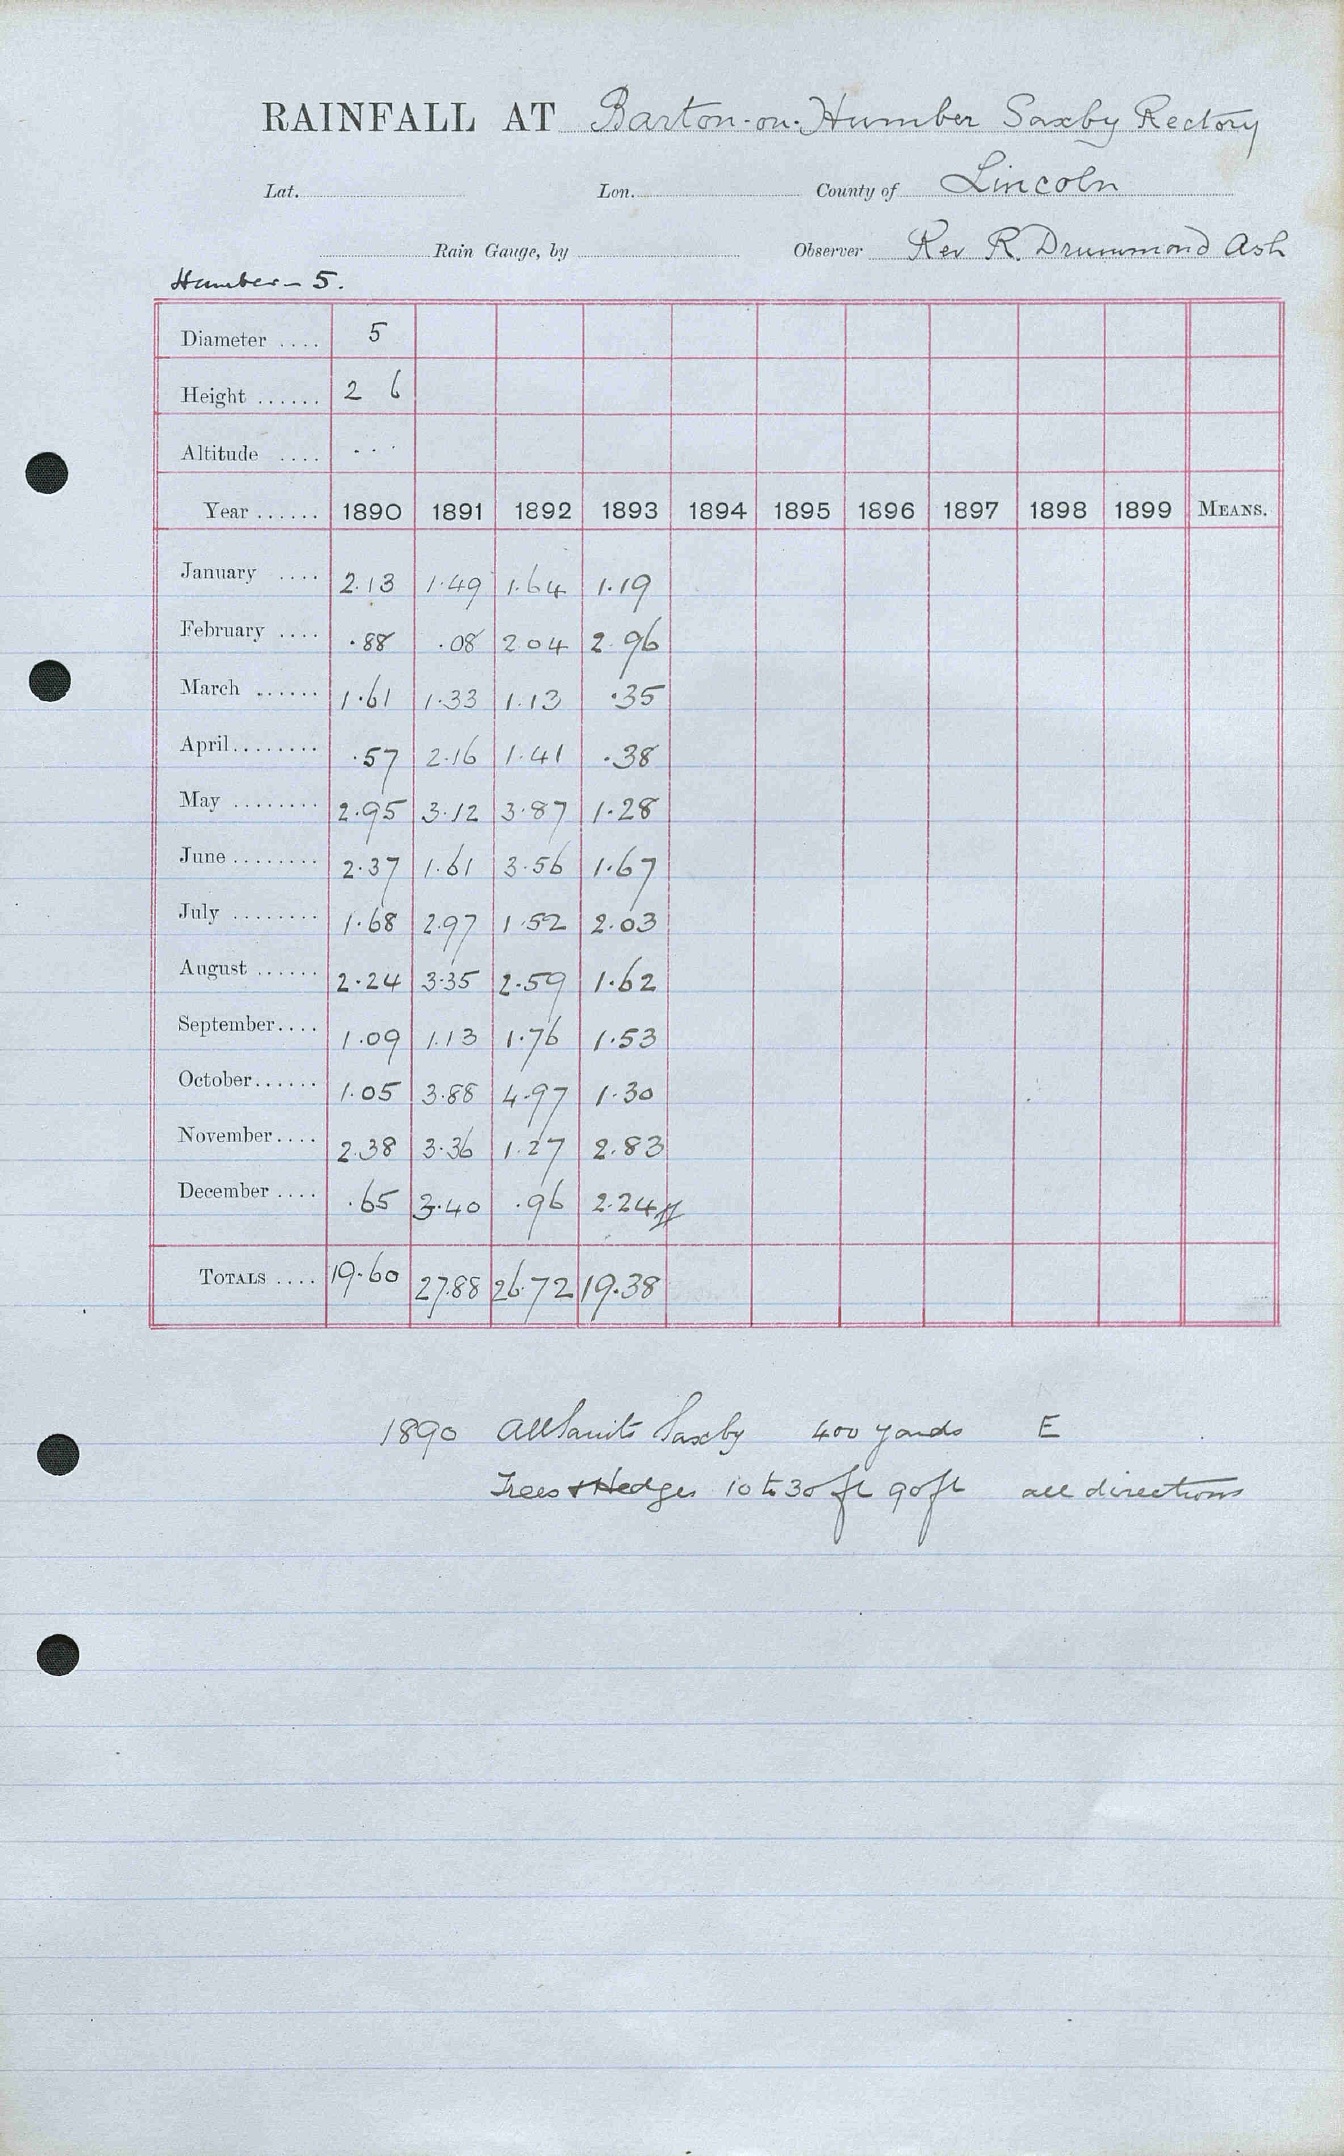 RAINFALL AT Barton-on-Humber Saxby Rectory
Lat. Lon. County of Lincoln
Rain Gauge, by Observer Rev R. Drummond Ash
Humber - 5.
Diameter .... 5
Height ...... 2 6
Altitude .... - - -
Year ...... 1890 1891 1892 1893 1894 1895 1896 1897 1898 1899 MEANS.
January .... 2.13 1.49 1.64 1.19
February .... .88 .08 2 04 2.96
March ...... 1.61 1.33 1.13 .35
April........ .57 2.16 1.41 .38
May ........ 2.95 3.12 3.87 1.28
June ........ 2.37 1.61 3.56 1.67
July ........ 1.68 2.97 1.52 2.03
August ...... 2.24 3.35 2.59 1.62
September.... 1.09 1.13 1.76 1.53
October...... 1.05 3.88 4.97 1.30
November.... 2.38 3.36 1.27 2.83
December .... .65 3.40 .96 2.24
TOTALS .... 19.60 27.88 26.72 19.38
1890 All Saints Saxby 400 yards E
Trees & Hedges 10 to 30 ft 90 ft all directions